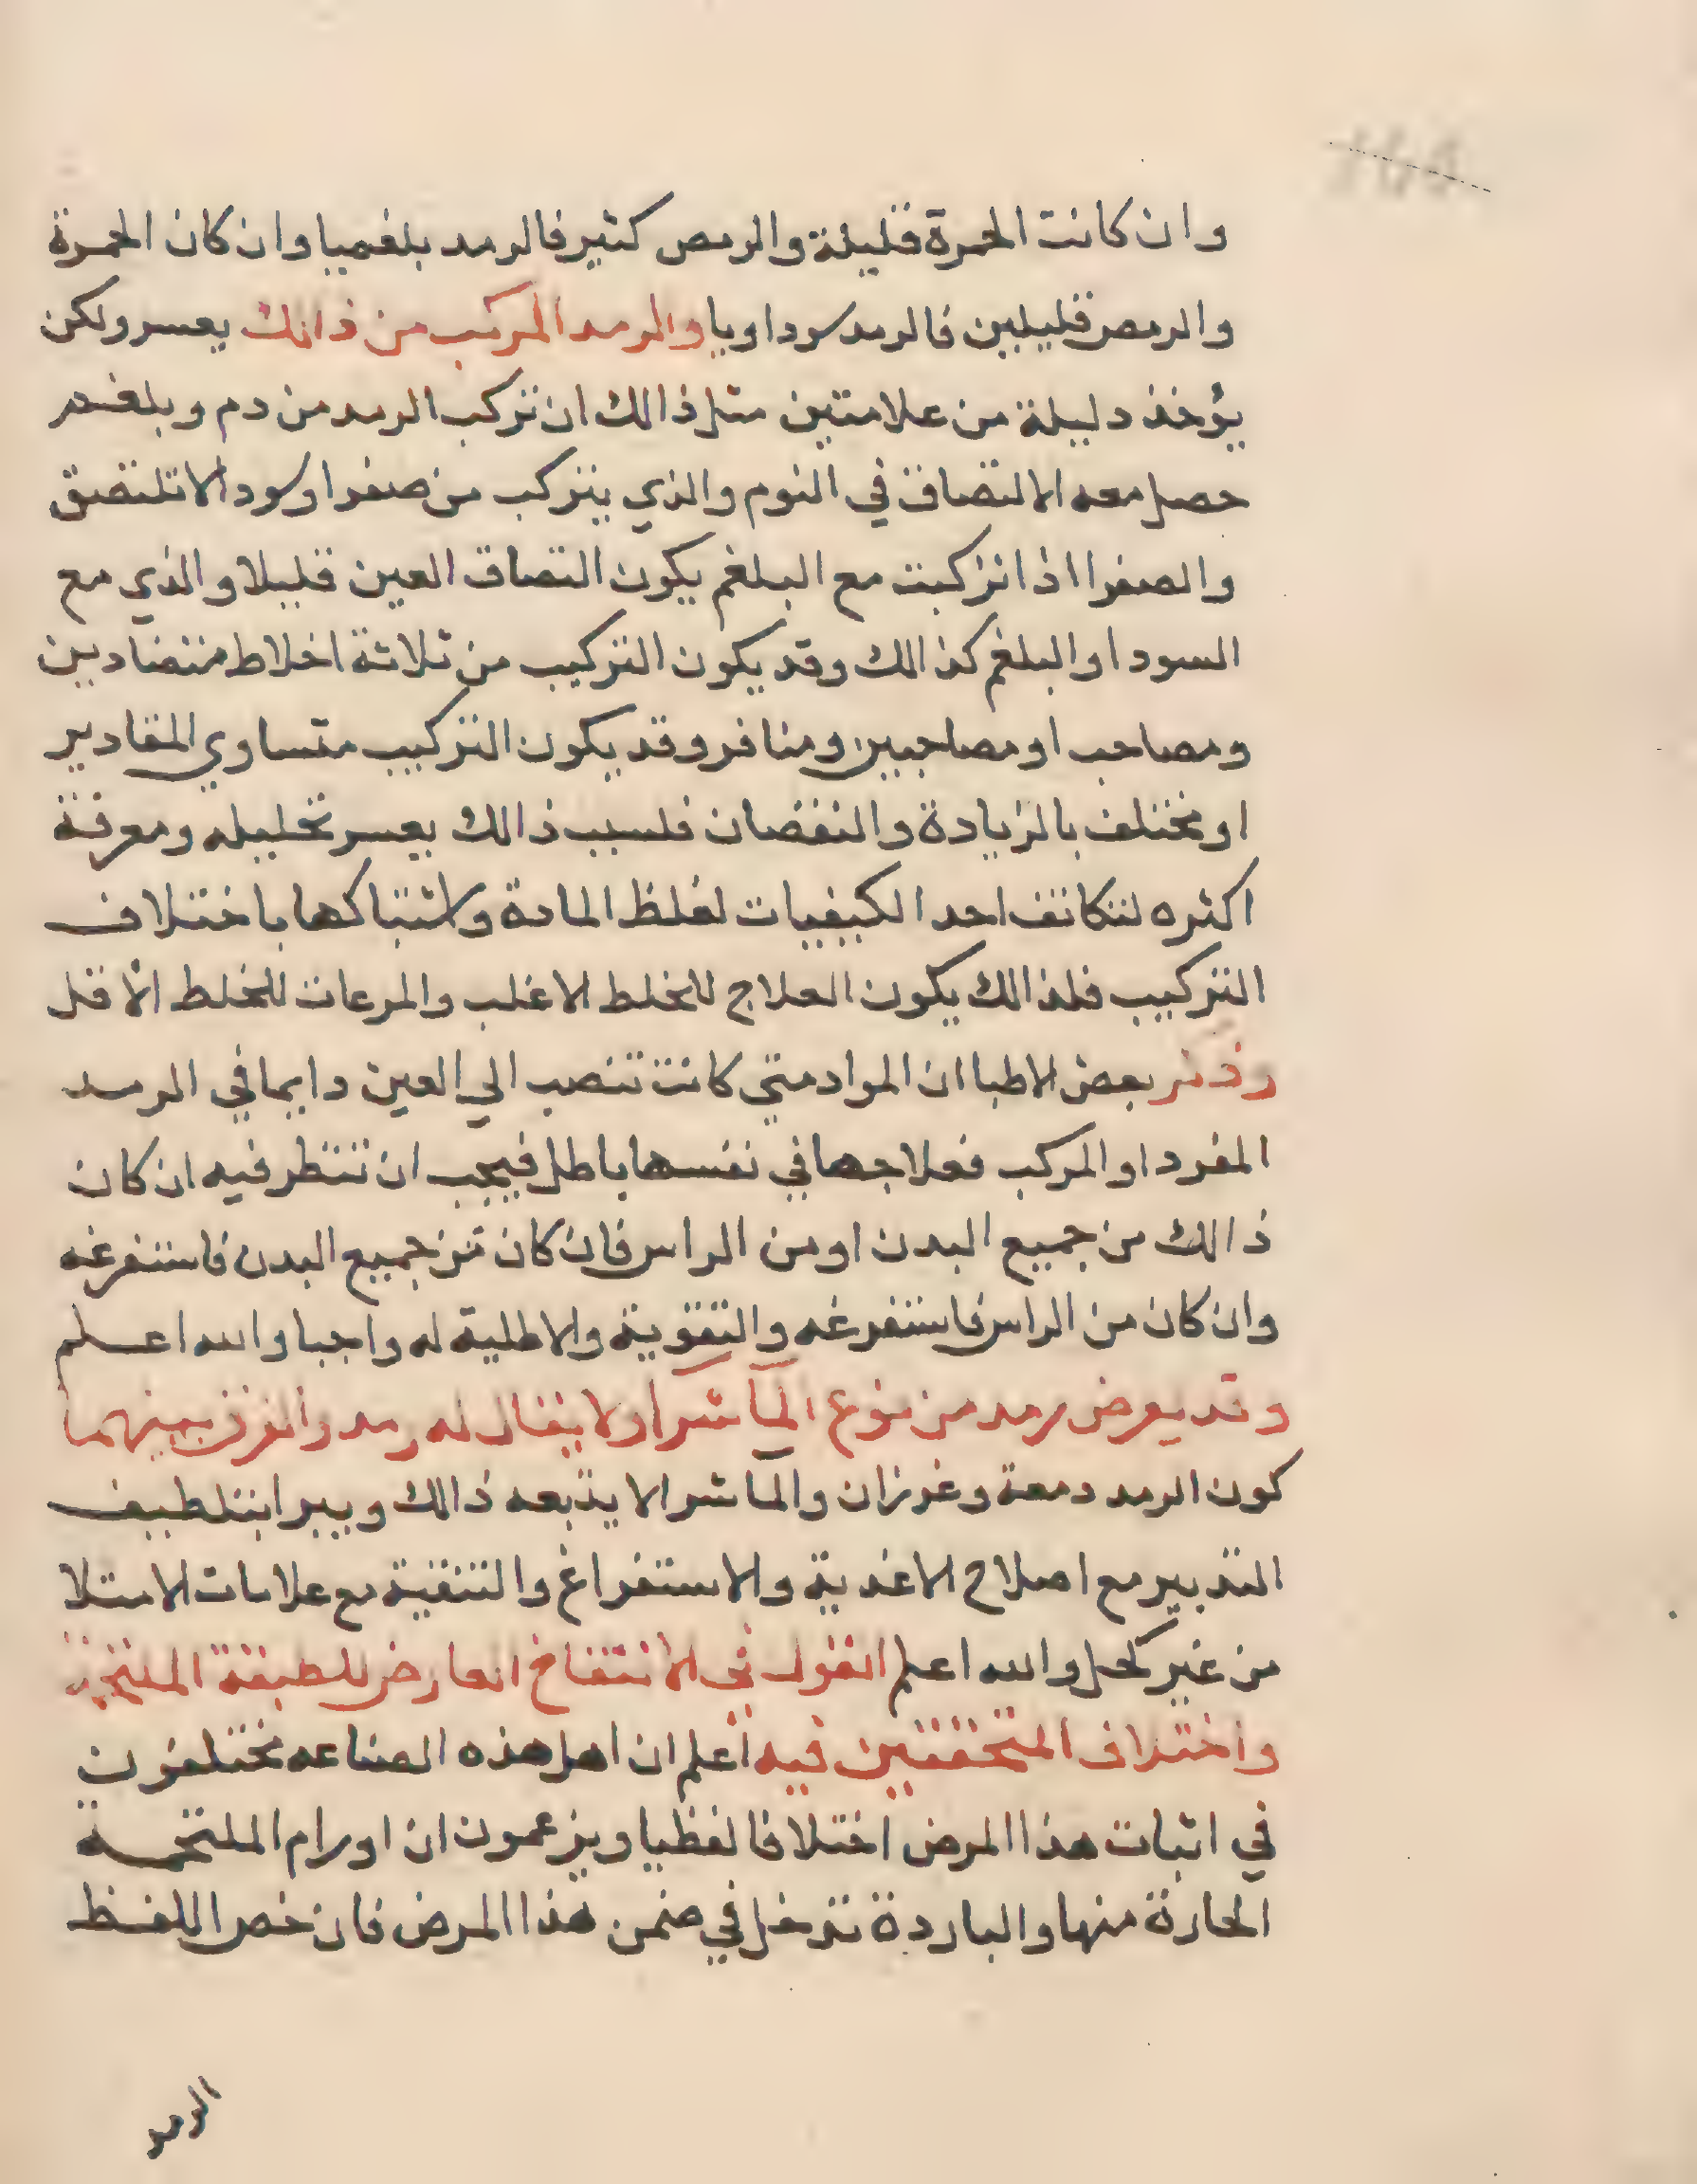 وان كانت الحمرة قليلة والرمص كثير فالرمد بلغميا وان كان الحمرة
والرمص قليلين فالرمد سوداويا والرمد المركب من ذالك يعسر ولكن
يؤخذ دليلة من علامتين مثل ذالك ان تركب الرمد من دم وبلغم
حصل معه الالتصاق في النوم والذي يتركب من صفرا وسودا لا تلتصق
والصفرا اذا تركبت مع البلغم يكون التصاق العين قليلا والذي مع
السودا والبلغم كذالك وقد يكون التركيب من ثلاثة اخلاط متضادين
ومصاحب او مصاحبين ومنافر وقد يكون التركيب متساوي المقادير
او مختلف بالزيادة والنقصان فلسبب ذالك يعسر تحليله ومعرفة
اكثره لتكاثف احد الكيفيات لغلظ المادة واشتباكها باختلاف
التركيب فلذالك يكون العلاج للخلط الاغلب والمرعات للخلط الاقل
وذكر بعض الاطبا ان المواد متي كانت تنصب الي العين دايما في الرمد
المفرد او المركب فعلاجها في نفسها باطل فيجب ان تنتظر فيه ان كان
ذالك من جميع البدن او من الراس فان كان من جميع البدن فاستفرغه
وان كان من الراس فاستفرغه والتقوية والاطلية له واجبا والله اعلم
وقد يعرض رمد من نوع المآشرا ولا يقال له رمد والفرق بينهما
كون الرمد دمعة وغرزان والماشرا لا يتبعه ذالك ويبرا بتلطيف
التدبير مع اصلاح الاغذية والاستفراغ والتنقية مع علامات الامتلا
من غير كحل والله اعلم القول في الانتفاخ العارض للطبقة الملتحمة
واختلاف المتحققين فيه اعلم ان اهل هذه الصناعه مختلفون
في اثبات هذا المرض اختلافا لفظيا ويزعمون ان اورام الملتحمة
الحارة منها والباردة تدخل في ضمن هذا المرض فان خص اللفظ